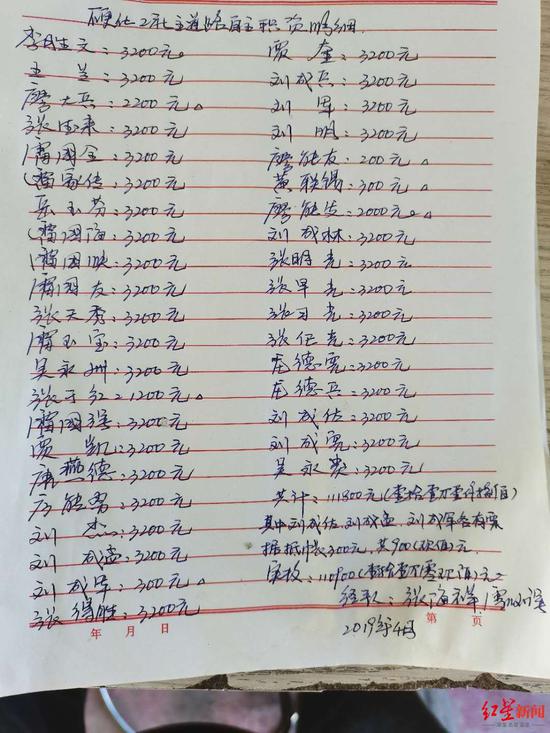 硬化2社主道路自主职资明细
李胜文:3200元
王兰:3200元
廖大兵:2200元△
张安东:3200元
廖国全:3200元
廖家传:3200元
乐玉芳:3200元
廖国海:3200元
廖国映:3200元
廖国友:3200元
张天秀:3200元
廖玉宝:3200元
吴永州:3200元
张于红:1200元△
廖国强:3200元
贾凯:3200元
唐燕德:3200元
廖能男:3200元
刘杰:3200元
刘成孟:3200元
刘成军:300元△
张得胜:3200元
年 月 日
贾奎:3200元
刘成兵:3200元
刘军:3200元
刘明:3200元
廖能友:200元△
黄联锡:300元△
廖能发:2000元△
刘成林:3200元
张明光:3200元
张早光:3200元
张习光:3200元
张任光:3200元
庄德宽:3200元
庄德兵:3200元
刘成佐:3200元
刘成宽:3200元
吴永贵:3200元
共计:111800元(壹拾壹万壹仟捌佰)
其中刘成佐、刘成孟、刘成军各有票
据抵帐300元,共900(玖佰)元.
实收:110900(壹拾壹万零玖佰)元
经手人:张海军 廖小强
第 页
2019年4月
红星新闻